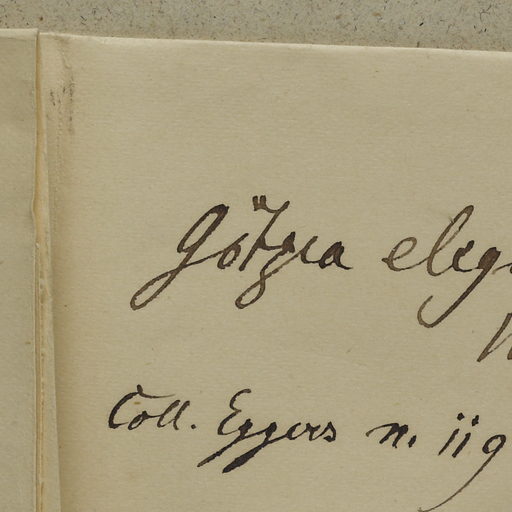 Götzea eleg
Coll. Eggers n. 119